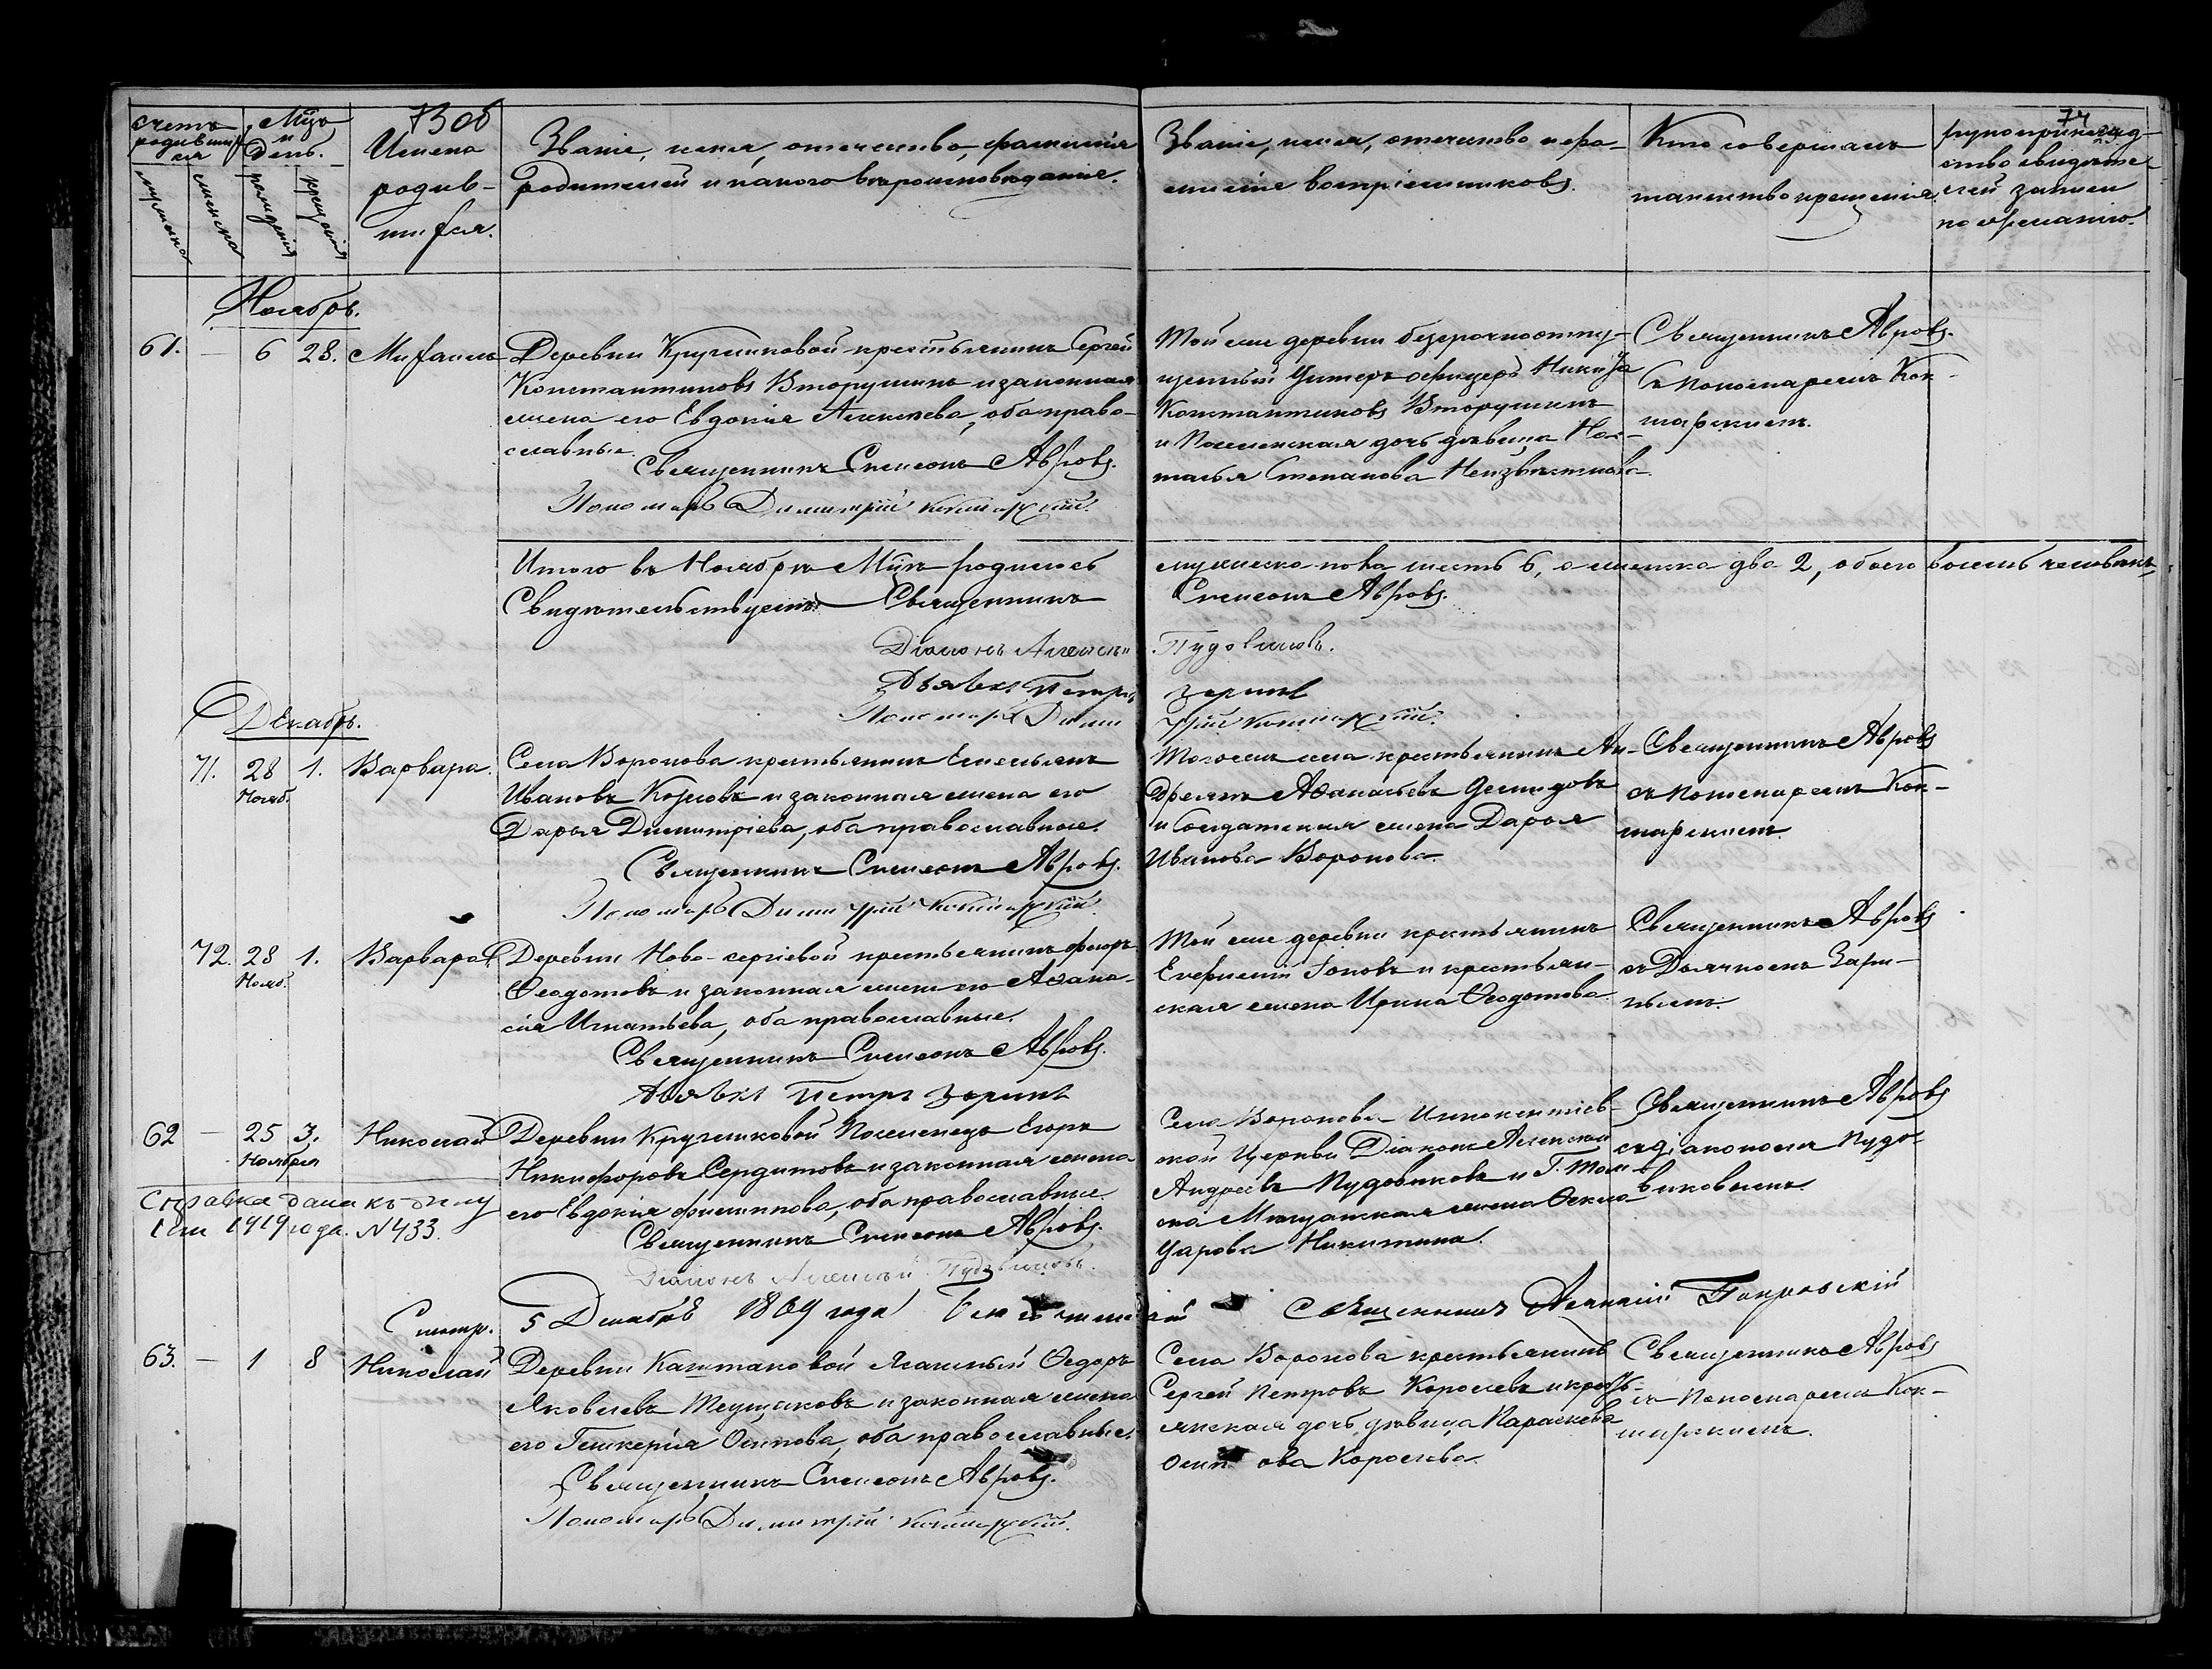 73об
74
счетъ родившихся
мужска
женска
Мцъ и день.
рожденія
крещенія
Имена
родив-
шихся.
Званіе, имя, отчество, фамилія
родителей и какого вѣроисповѣданія.
Званіе, имя, отчество и фа-
милія воспріемниковъ.
Кто совершалъ
таинство крещенія.
рукоприклад-
ство свидѣте-
лей записи
по желанію.
Ноябрь.
61. — 6 28. Михаилъ
Деревни Кругликовой крестьянинъ Сергѣй
Константиновъ Вторушинъ и законная
жена его Евдокія Алексѣева, оба право-
славные.
Священникъ Симеонъ Авровъ.
Пономарь Димитрій
Той же деревни безсрочноотпу-
щенный Унтеръ офицеръ Никита
Константиновъ Вторушинъ
и Поселенская дочь дѣвица На-
талья Степанова Неизвѣстнова.
Священникъ Авровъ.
съ Пономаремъ
Итого въ Ноябрѣ Мцѣ родилось
мужеска пола шесть 6, а женска два 2, обоего восемь человѣкъ,
Свидѣтельствуетъ: Священникъ
Симеонъ Авровъ.
Діаконъ Алексѣй
Пудовиковъ.
Дьячекъ Петръ
Заринъ
Пономарь Дими
трій
Декабрь.
71. 28 Нояб. 1. Варвара.
Села Воронова крестьянинъ Емельянъ
Ивановъ Козловъ и законная жена его
Дарья Димитріева, оба православные.
Священникъ Симеонъ Авровъ.
Пономарь Димитрій
Тогоже села крестьянинъ Ан-
дреянъ Аѳанасьевъ Демидовъ
и солдатская жена Дарья
Иванова Воронова.
Священникъ Авровъ
съ Пономаремъ
72. 28 Нояб. 1. Варвара.
Деревни Ново-сергіевой крестьянинъ
Ѳеодотовъ и законная жена его Аѳана-
сія Игнатьева, оба православные.
Священникъ Симеонъ Авровъ.
Дьячекъ Петръ Заринъ
Той же деревни крестьянинъ
Евфимій Іоновъ и крестьян-
ская жена Ирина Ѳеодотова.
Священникъ Авровъ
съ Дьячкомъ Зари-
нымъ.
62 — 25 Ноября 3. Николай
Деревни Кругликовой Поселенецъ Егоръ
Никифоровъ Сердитовъ и законная жена
его Евдокія Филиппова, оба православные.
Священникъ Симеонъ Авровъ.
Діаконъ Алексѣй Пудовиковъ.
Села Воронова Иннокентіев-
ской Церкви Діаконъ Алексѣй
Андреевъ Пудовиковъ и Г. Том-
ска Мѣщанская жена
Уарова Никитина.
Священникъ Авровъ
съ діакономъ Пудо-
виковымъ.
Справка дана къ дѣлу
1919 года. N 433.
Смотр. 5 Декабря 1869 года Благочинный Священникъ Покровскій
63. — 1 8 Николай
Деревни Каштаковой Ясачный Ѳедоръ
Яковлевъ Тещаковъ и законная жена
его Гликерія Осипова, оба православные.
Священникъ Симеонъ Авровъ.
Пономарь Димитрій
Села Воронова крестьянинъ
Сергѣй Петровъ Королевъ и кресть-
янская дочь дѣвица Параскева
Осипова Королева.
Священникъ Авровъ
съ Пономаремъ